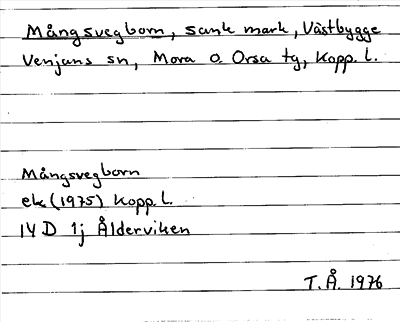 Mångsvegborn, sank mark, Västbygge
Venjans sn, Mora o. Orsa tg, Kopp. l.
Mångsvegborn
ek (1975) Kopp. l.
14 D 1j Ålderviken
T.Å. 1976